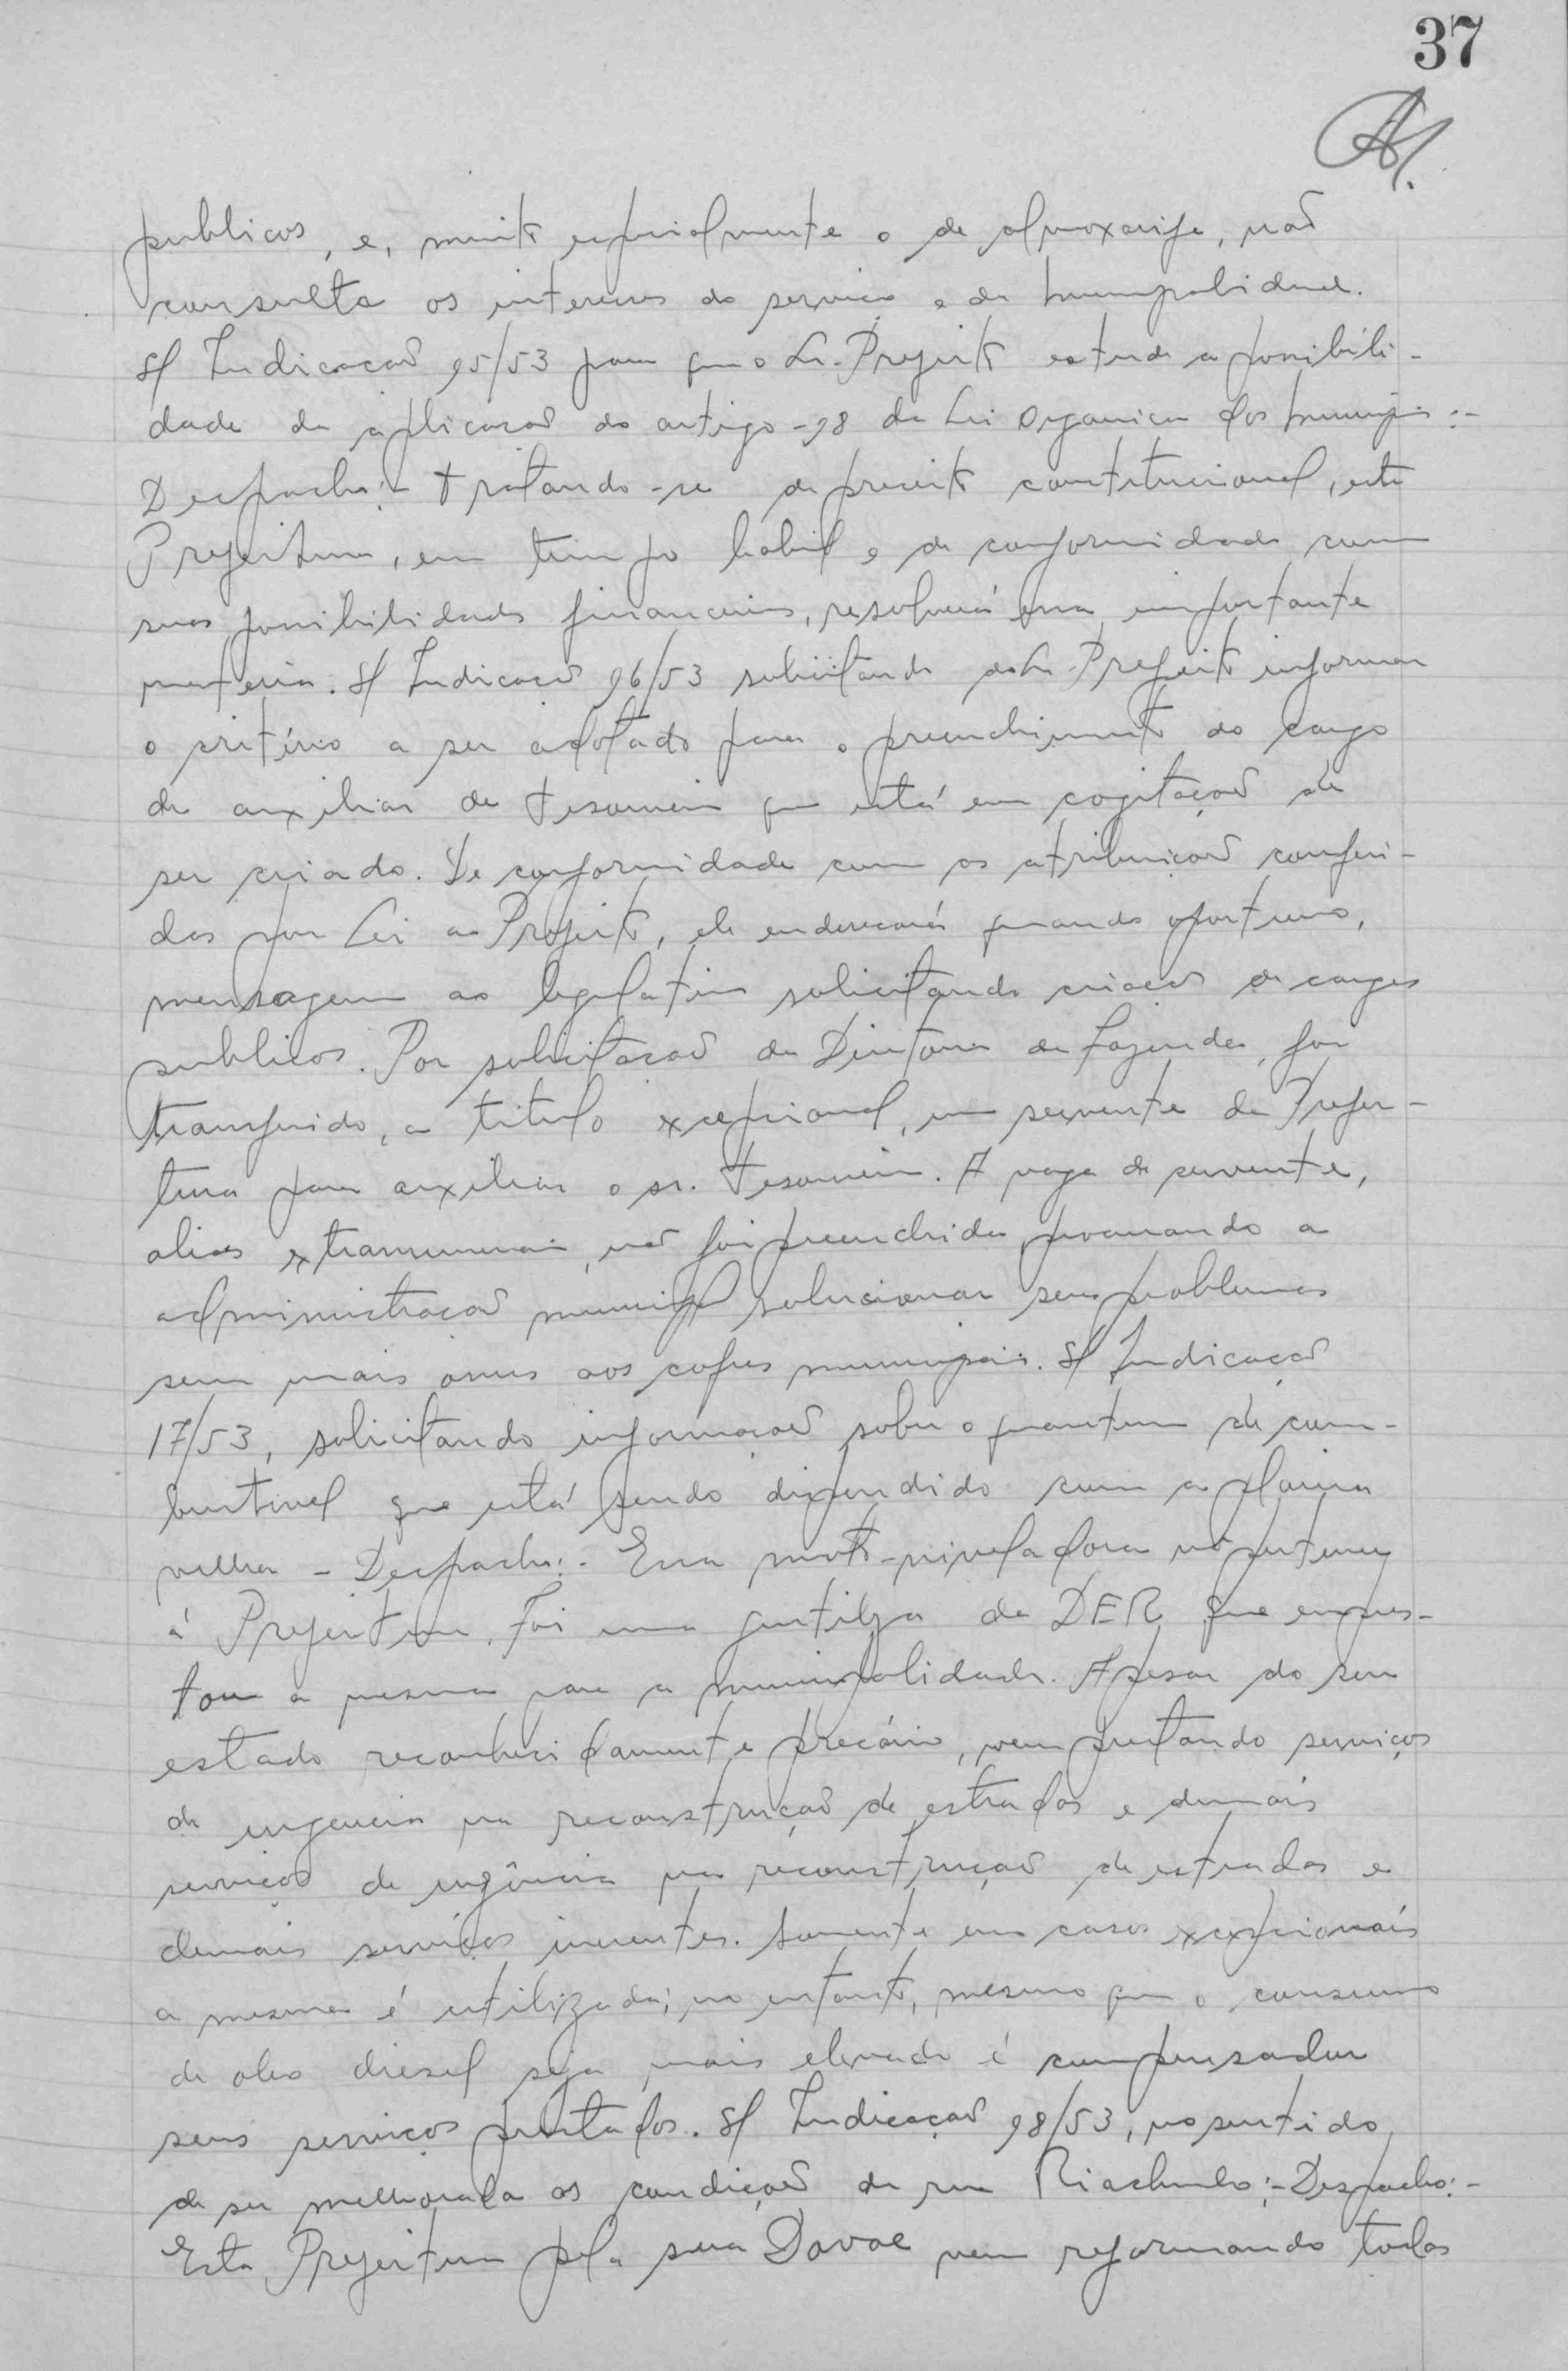 37
publicos, e, muito especialmente o de almoxarife, não
consulta os interesses do serviço e da municipalidade.
S/ Indicação 95/53 para que o Sr. Prefeito estude a possibili-
dade da aplicação do artigo -98 da Lei Organica dos Municipios:-
Despacho:- Tratando-se de preceito constitucional, esta
Prefeitura, em tempo habil e de conformidade com
suas possibilidades financeiras, resolverá essa importante
materia. S/ Indicação 96/53 solicitando do Sr. Prefeito informar
o critério a ser adotado para o preenchimento do cargo
de auxiliar de tesoureiro que está em cogitação de
ser criado. De conformidade com as atribuições conferi-
das por Lei ao Prefeito, ele endereçará quando oportuno,
mensagem ao legislativo solicitando criação de cargos
publicos. Por solicitação da Diretoria da Fazenda, foi
transferido, a titulo excepcional, um servente da Prefei-
tura para auxiliar o sr. Tesoureiro. A vaga de servente,
alias extranumerario, não foi preenchida, procurando a
administração municipal solucionar seus problemas
sem mais onus aos cofres municipais. S/ Indicação
17/53, solicitando informações sobre o quantum de com-
bustivel que está sendo dispendido com a plaina
velha - Despacho:- Essa moto-niveladora não pertence
á Prefeitura. Foi uma gentileza do DER que empres-
tou a mesma para a municipalidade. Apesar do seu
estado reconhecidamente precário, vem prestando serviços
de urgencia na reconstrução de estradas e demais
serviços de urgência na reconstrução de estradas e
demais serviços inerentes. Somente em casos excepcionais
a mesma é utilizada; no entanto, mesmo que o consumo
de oleo diesel seja mais elevado é compensador
seus serviços prestados. S/ Indicação 98/53, no sentido
de ser melhorada as condições da rua Riachuelo:- Despacho:-
Esta Prefeitura pela sua Dovoe vem reformando todas